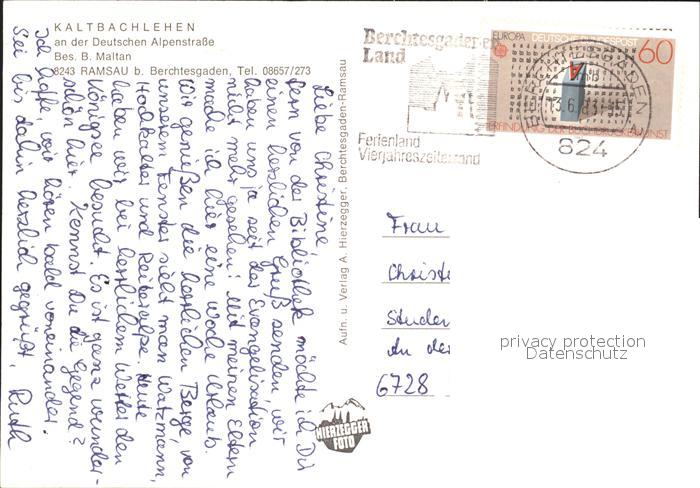 KALTBACHLEHEN
an der Deutschen Alpenstraße
Bes. B. Maltan
8243 RAMSAU b. Berchtesgaden, Tel. 08657/273
Liebe Christine,
fern von der Bibliothek möchte ich Dir
einen herzlichen Gruß senden, wir
haben uns ja seit der Evangelisation
nicht mehr gesehen! Mit meinen Eltern
mache ich hier eine Woche Urlaub.
Wir genießen die herrlichen Berge, von
unserem Fenster sieht man Watzmann,
Hochkalter und Reiteralpe. Heute
haben wir bei herrlichem Wetter den
Königsee besucht. Es ist ganz wunder-
schön hier. Kennst Du die Gegend?
Ich hoffe, wir hören bald voneinander.
Sei bis dahin herzlich gegrüßt, Ruth
Aufn. u. Verlag A. Hierzegger, Berchtesgaden-Ramsau
HIERZEGGER
FOTO
Berchtesgadener
Land
Ferienland
Vierjahreszeitenland
EUROPA DEUTSCHE BUNDESPOST
60
ERFINDUNG DER BUCHDRUCKERKUNST
BERCHTESGADEN
13.6.83
824
Frau
Christ
Studen
An der
6728
privacy protection
Datenschutz